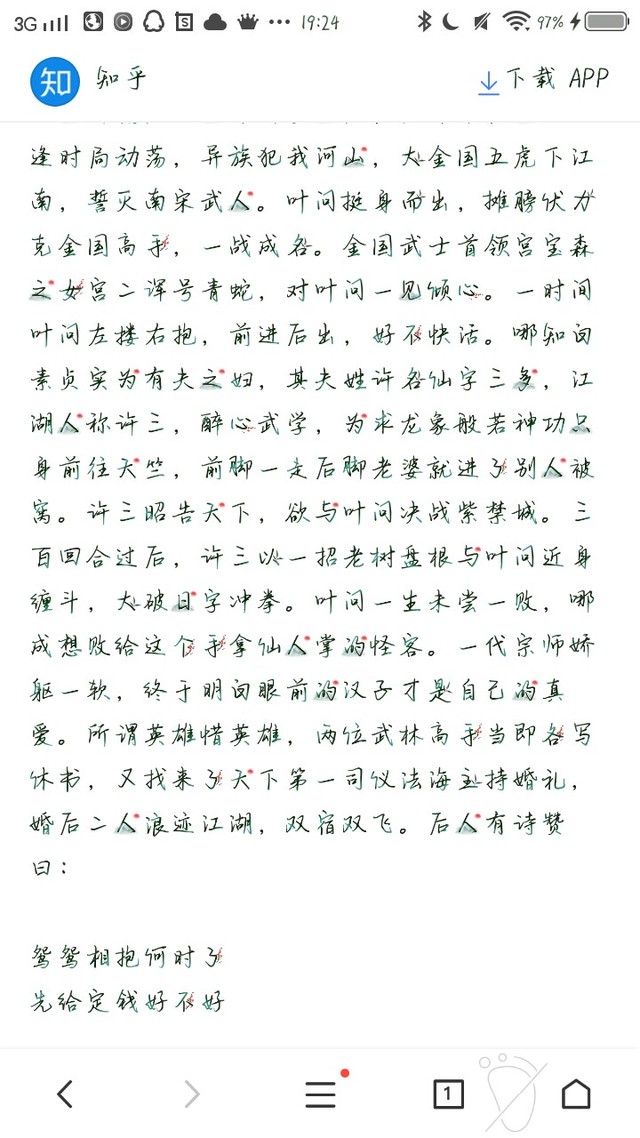 3G 19:24 97%
知 知乎 下载 APP
逢时局动荡，异族犯我河山，大金国五虎下江
南，誓灭南宋武人。叶问挺身而出，摊膀伏力
克金国高手，一战成名。金国武士首领宫宝森
之女宫二诨号青蛇，对叶问一见倾心。一时间
叶问左搂右抱，前进后出，好不快活。哪知白
素贞实为有夫之妇，其夫姓许名仙字三多，江
湖人称许三，醉心武学，为求龙象般若神功只
身前往天竺，前脚一走后脚老婆就进了别人被
窝。许三昭告天下，欲与叶问决战紫禁城。三
百回合过后，许三以一招老树盘根与叶问近身
缠斗，大破日字冲拳。叶问一生未尝一败，哪
成想败给这个手拿仙人掌的怪客。一代宗师娇
躯一软，终于明白眼前的汉子才是自己的真
爱。所谓英雄惜英雄，两位武林高手当即各写
休书，又找来了天下第一司仪法海主持婚礼，
婚后二人浪迹江湖，双宿双飞。后人有诗赞
曰：
鸳鸳相抱何时了
先给定钱好不好
1